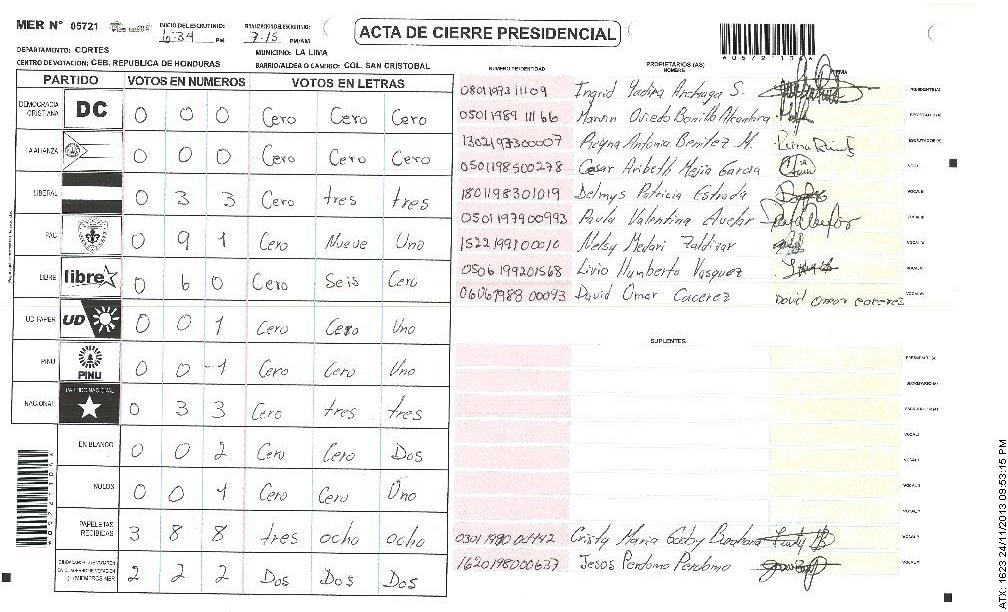 MER N° 05721 INICIO DEL ESCRUTINIO: 6:34 PM FINALIZACION DEL ESCRUTINIO: 7:15 PM/AM
ACTA DE CIERRE PRESIDENCIAL
*05721104*
DEPARTAMENTO: CORTES MUNICIPIO: LA LIMA
CENTRO DE VOTACION: CEB. REPUBLICA DE HONDURAS BARRIO/ALDEA O CASERIO: COL. SAN CRISTOBAL
PARTIDO VOTOS EN NUMEROS VOTOS EN LETRAS
DEMOCRACIA CRISTIANA DC 0 0 0 Cero Cero Cero
LA ALIANZA 0 0 0 Cero Cero Cero
LIBERAL 0 3 3 Cero tres tres
PAC 0 9 1 Cero Nueve Uno
LIBRE libre 0 6 0 Cero Seis Cero
UD FAPER UD 0 0 1 Cero Cero Uno
PINU PINU 0 0 1 Cero Cero Uno
NACIONAL PARTIDO NACIONAL 0 3 3 Cero tres tres
EN BLANCO 0 0 2 Cero Cero Dos
NULOS 0 0 1 Cero Cero Uno
PAPELETAS RECIBIDAS 3 8 8 tres ocho ocho
2 2 2 Dos Dos Dos
NUMERO DE IDENTIDAD PROPIETARIOS (AS) NOMBRE FIRMA
0801197311109 Ingrid Yadira Arteaga S. PRESIDENTE(A)
0501 1989 11166 Marvin Oviedo Bonilla Alcantara SECRETARIO(A)
1302197300007 Reyna Antonia Benitez M. ESCRUTADOR(A)
0501198500278 Cesar Aribeth Mejia Garcia VOCAL I
1801198301019 Delmys Patricia Estrada VOCAL II
0501197900993 Paula Valentina VOCAL III
1522199100016 Nelsy Medari Zaldivar VOCAL IV
0506199201568 Livio Humberto Vasquez VOCAL V
06061988 00093 David Omar Cacerez David Omar caceres VOCAL VI
SUPLENTES
PRESIDENTE(A)
SECRETARIO(A)
ESCRUTADOR(A)
VOCAL I
VOCAL II
VOCAL III
VOCAL IV
Cristy Maria VOCAL V
1620198000637 Jesos Perdomo Perdomo VOCAL VI
ATX: 1623 24/11/2013 09:53:15 PM